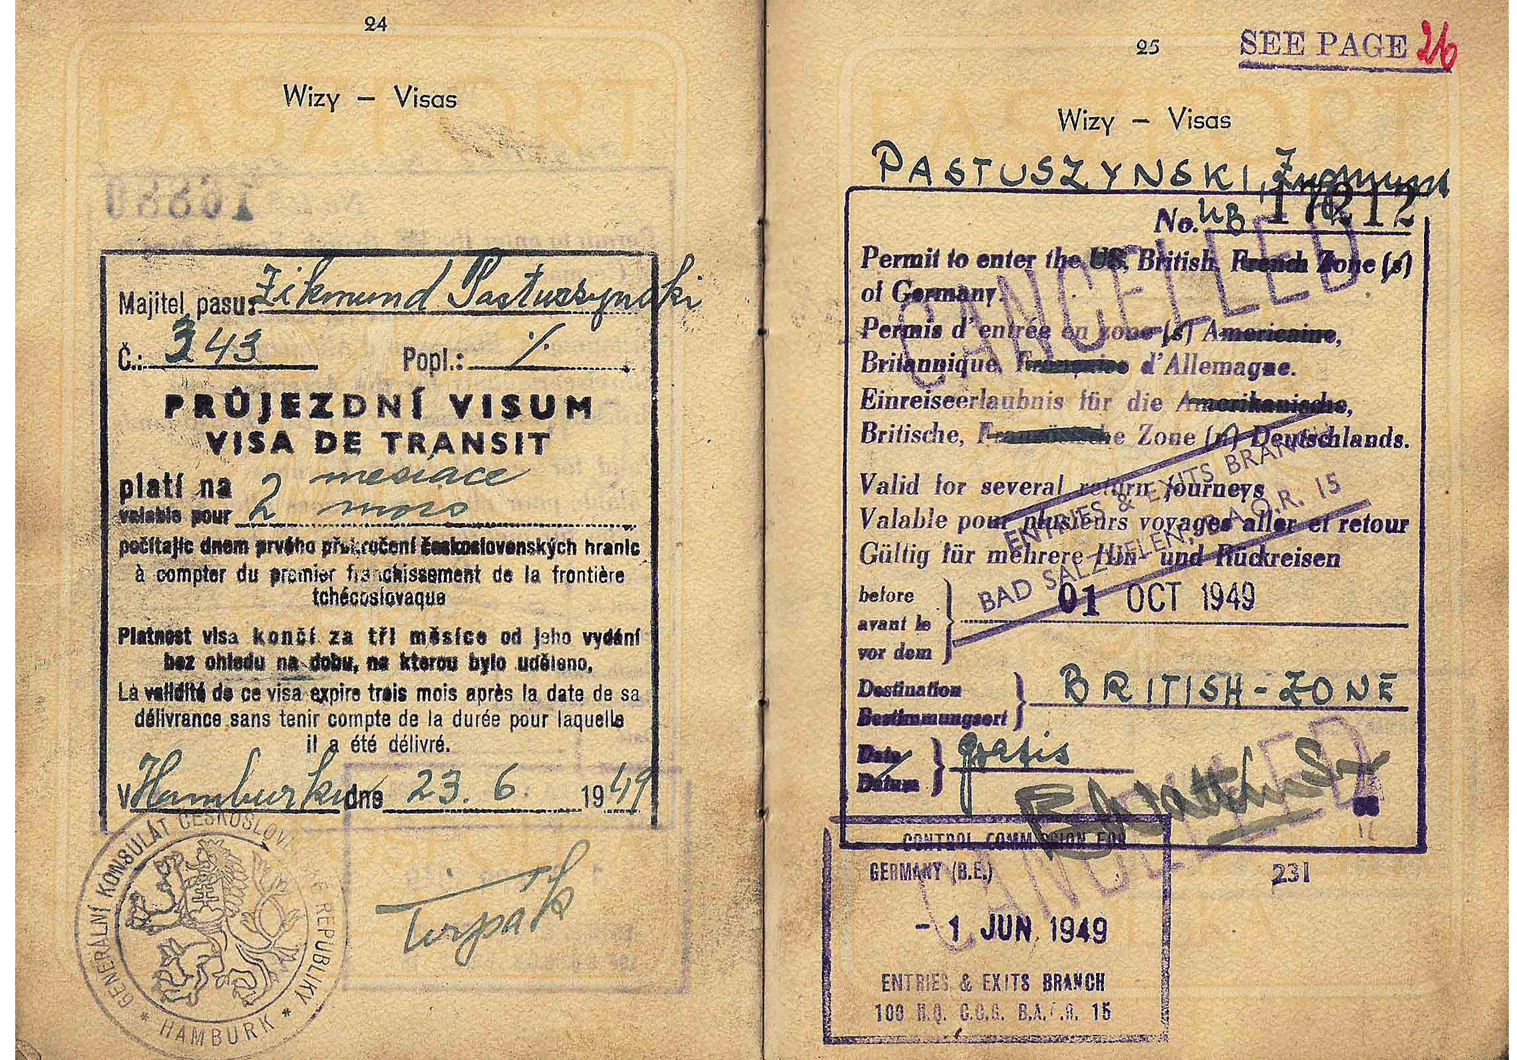 24
Wizy — Visas
10880
Majitel pasu: Zikmund Pastuszynski
Č.: 343 Popl.: %
PRŮJEZDNÍ VISUM
VISA DE TRANSIT
platí na 2 mesiace
valable pour 2 mois
počítajíc dnem prvého překročení československých hranic
à compter du premier franchissement de la frontière
tchécoslovaque
Platnost visa končí za tři měsíce od jeho vydání
bez ohledu na dobu, na kterou bylo uděleno,
La validité de ce visa expire trois mois après la date de sa
délivrance sans tenir compte de la durée pour laquelle
il a été délivré.
V Hamburku dne 23. 6. 1949
GENERÁLNÍ KONSULÁT ČESKOSLOVENSKÉ REPUBLIKY
* HAMBURK *
Tirpák
25
SEE PAGE 26
Wizy — Visas
PASTUSZYNSKI, Zygmunt
No. 17212
Permit to enter the US, British, French Zone (s)
of Germany.
Permis d'entrée en zone (s) Americaine,
Britannique, Française d'Allemagne.
Einreiseerlaubnis für die Amerikanische,
Britische, Französische Zone (n) Deutschlands.
CANCELLED
Valid for several return journeys
Valable pour plusieurs voyages aller et retour
Gültig für mehrere Hin- und Rückreisen
ENTRIES & EXITS BRANCH
BAD SALZUFLEN, B.A.O.R. 15
before
avant le
vor dem
01 OCT 1949
Destination
Bestimmungsort
BRITISH-ZONE
Date
Datum
gratis
CANCELLED
CONTROL COMMISSION FOR
GERMANY (B.E.)
231
- 1 JUN 1949
ENTRIES & EXITS BRANCH
100 H.Q. C.C.G. B.A.O.R. 15